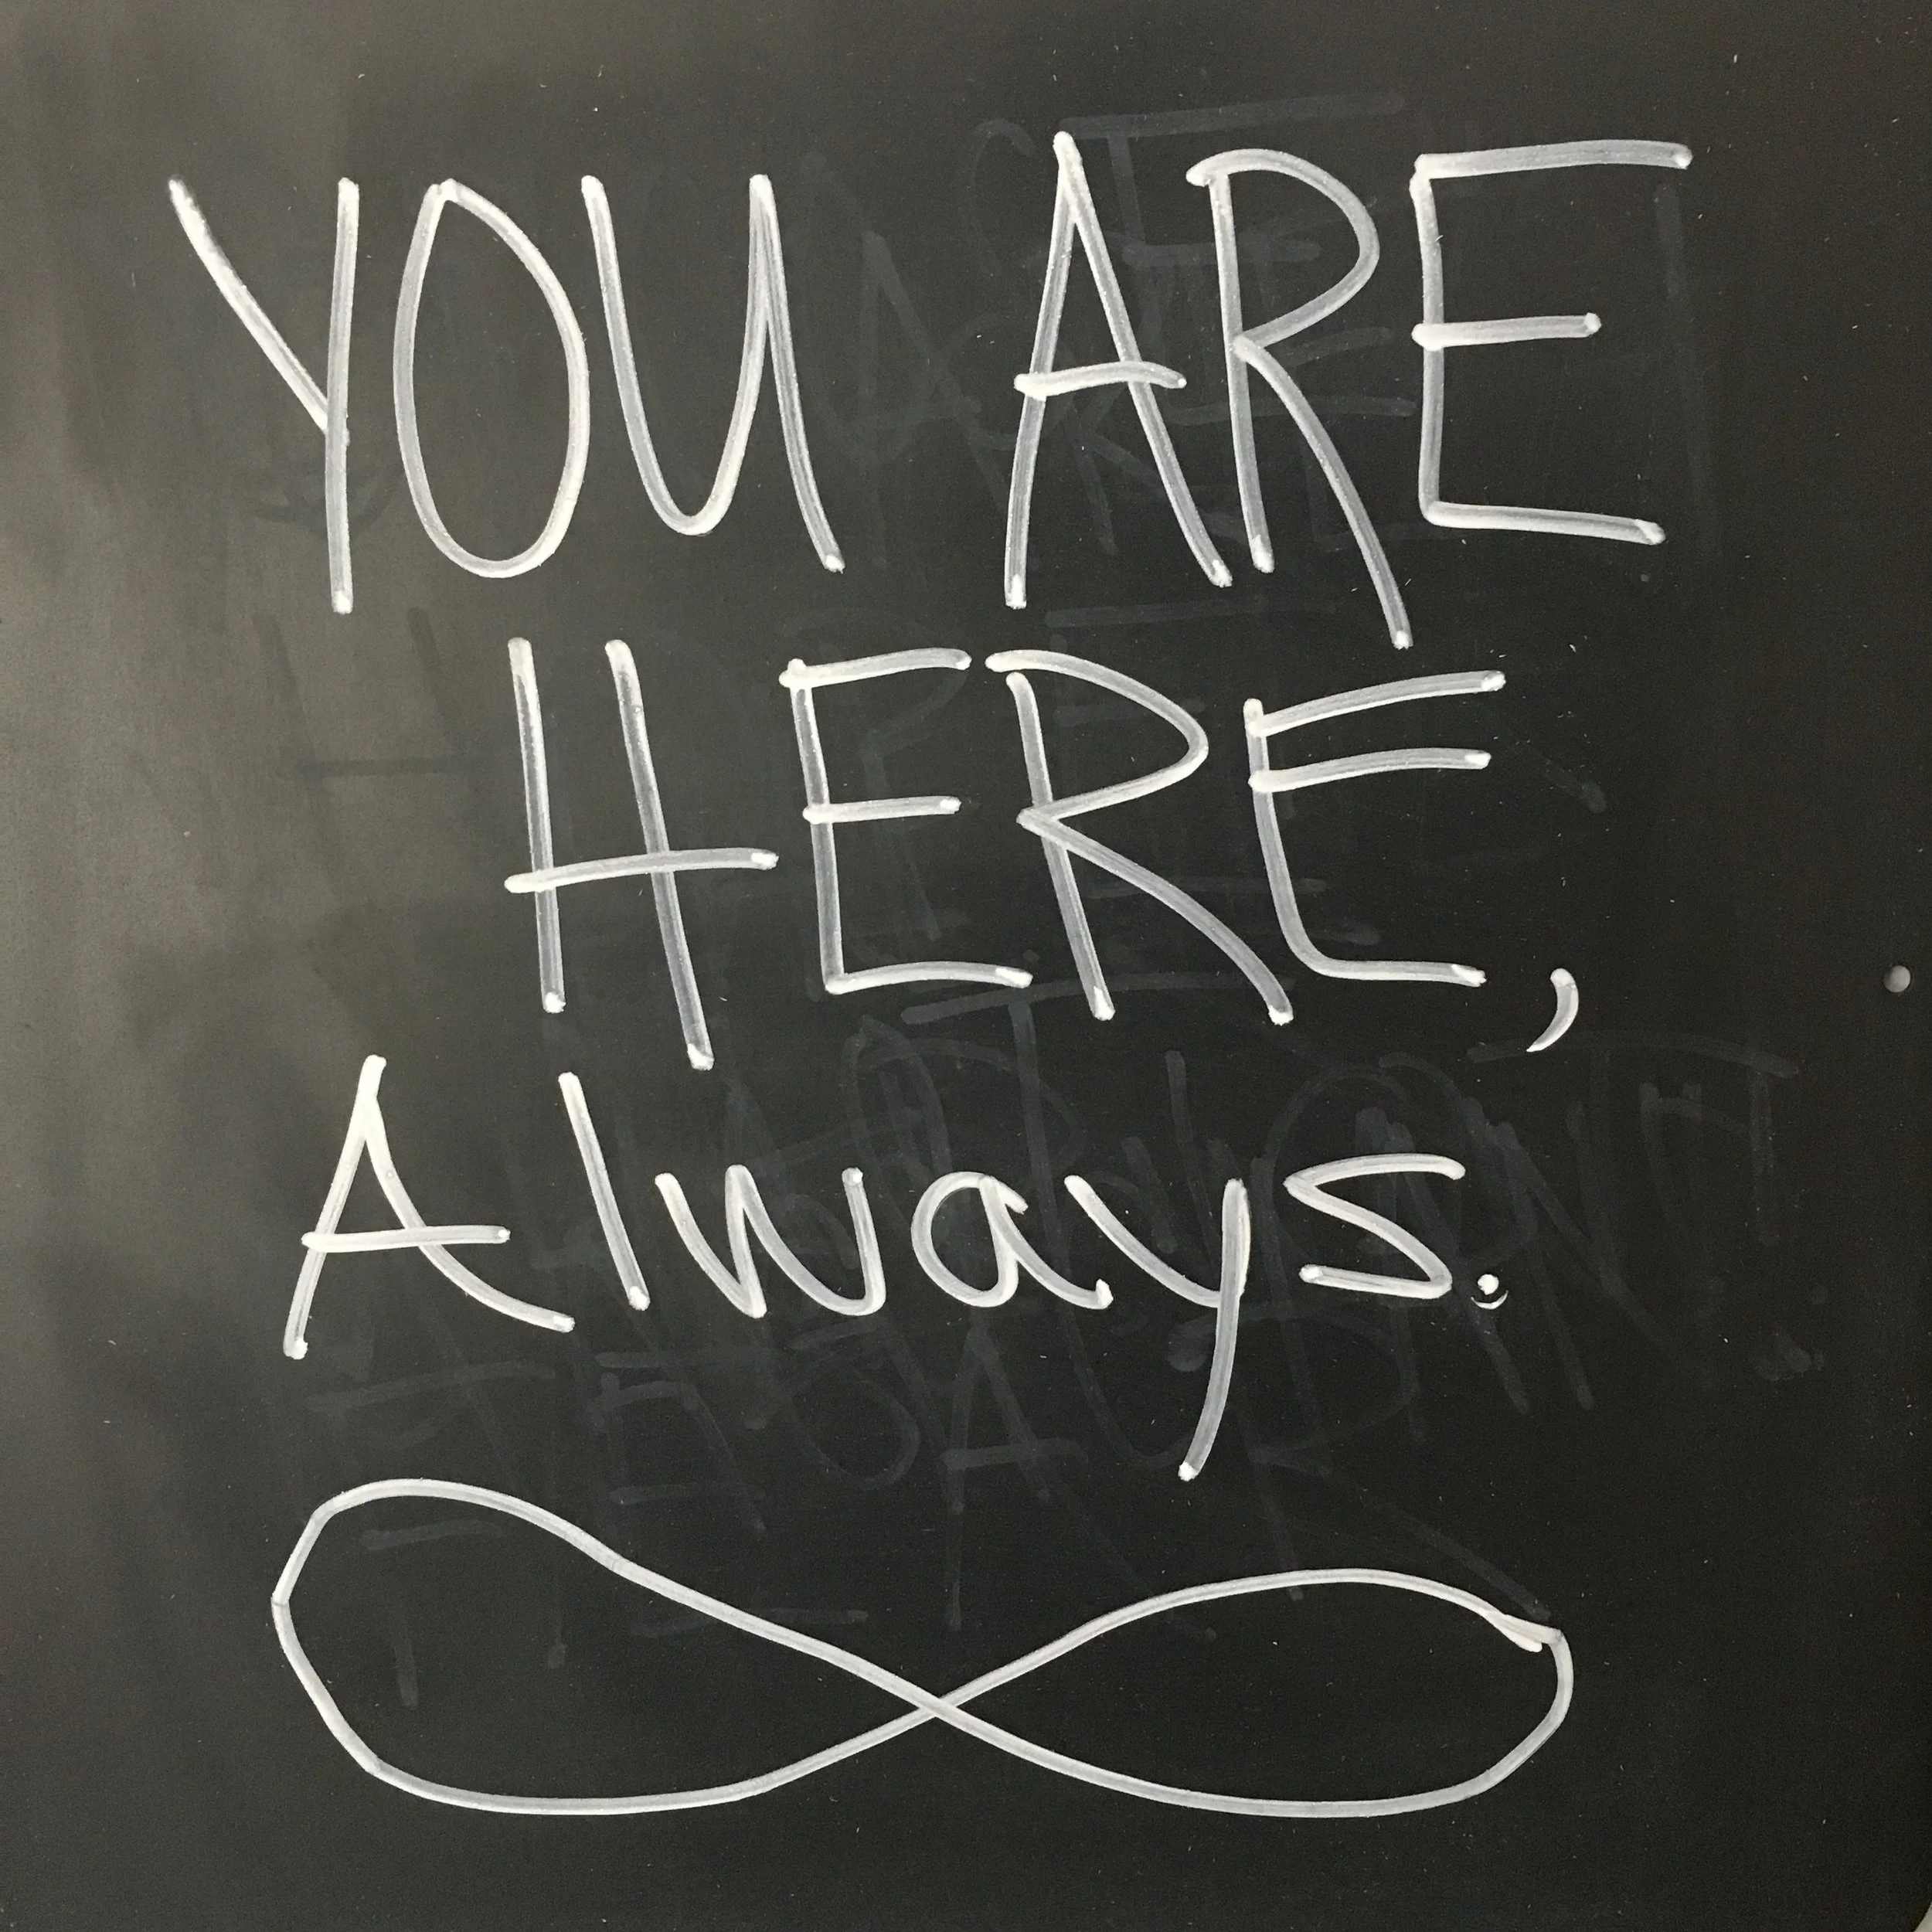 YOU ARE
HERE,
Always.